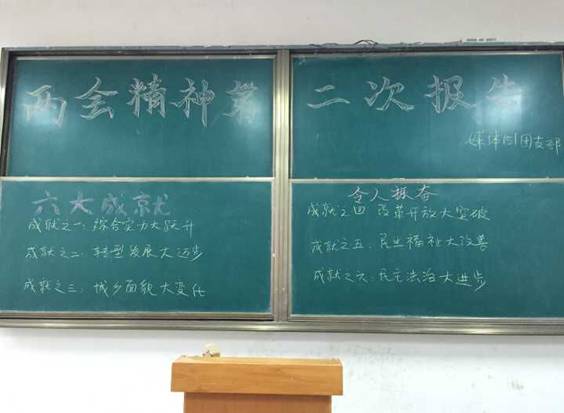 两会精神第二次报告
媒体1101团支部
六大成就 令人振奋
成就之一：综合实力大跃升
成就之二：转型发展大迈步
成就之三：城乡面貌大变化
成就之四：改革开放大突破
成就之五：民生福祉大改善
成就之六：民主法治大进步